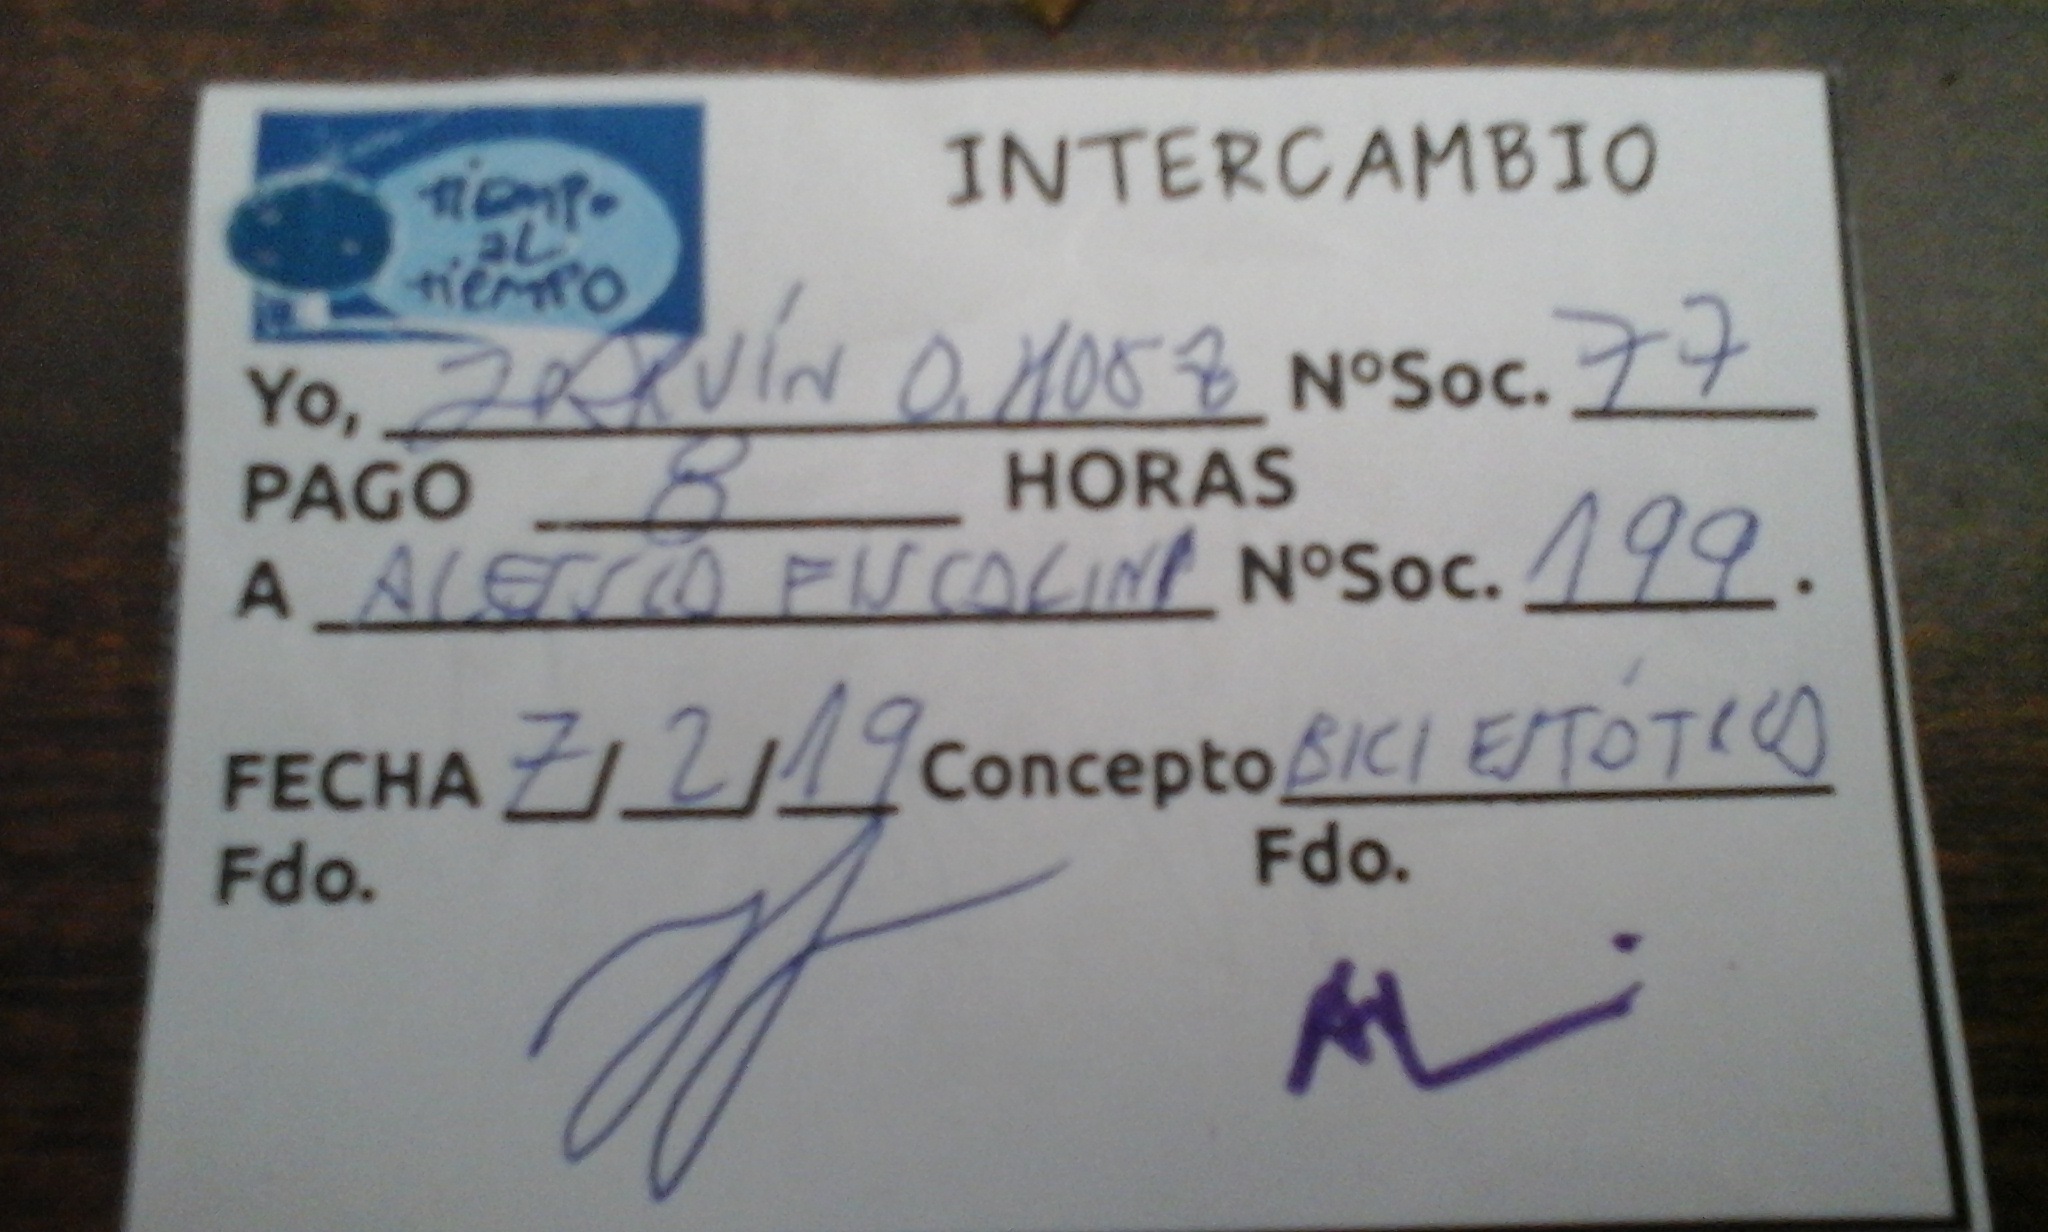 tiempo
al
tiempo
INTERCAMBIO
Yo, JOAQUÍN O. NºSoc. 77
PAGO 8 HORAS
A ALESSIO FUSCOLINI NºSoc. 199.
FECHA 7/2/19 Concepto BICI ESTÓTICO
Fdo. Fdo.